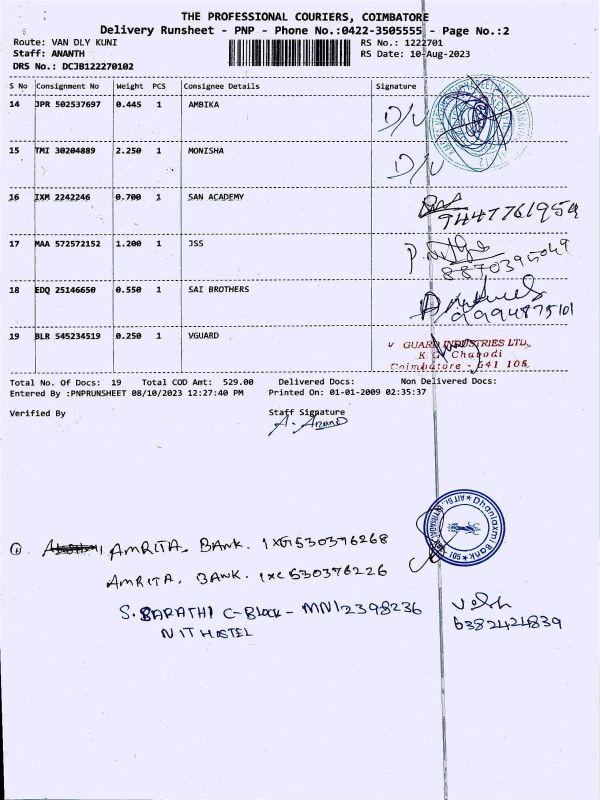 THE PROFESSIONAL COURIERS, COIMBATORE
Delivery Runsheet - PNP - Phone No.:0422-3505555 - Page No.:2
Route: VAN DLY KUNI RS No.: 1222701
Staff: ANANTH RS Date: 10-Aug-2023
DRS No.: DCJB122270102
S No Consignment No Weight PCS Consignee Details Signature
14 JPR 502537697 0.445 1 AMBIKA
15 TMI 30204889 2.250 1 MONISHA
16 IXM 2242246 0.700 1 SAN ACADEMY
9447761959
17 MAA 572572152 1.200 1 JSS
8870395049
18 EDQ 25146650 0.550 1 SAI BROTHERS
9994875101
19 BLR 545234519 0.250 1 VGUARD
V GUARD INDUSTRIES LTD.,
K G Chavadi
Coimbatore - 641 105.
Total No. Of Docs: 19 Total COD Amt: 529.00 Delivered Docs: Non Delivered Docs:
Entered By :PNPRUNSHEET 08/10/2023 12:27:40 PM Printed On: 01-01-2009 02:35:37
Verified By Staff Signature
A. Anand
Dhanlaxmi Bank
① AMRITA. BANK. IXG530376268
AMRITA. BANK. IXC530376226
S. BARATHI C-Block - MNI2398236
NIT HOSTEL
6382424839